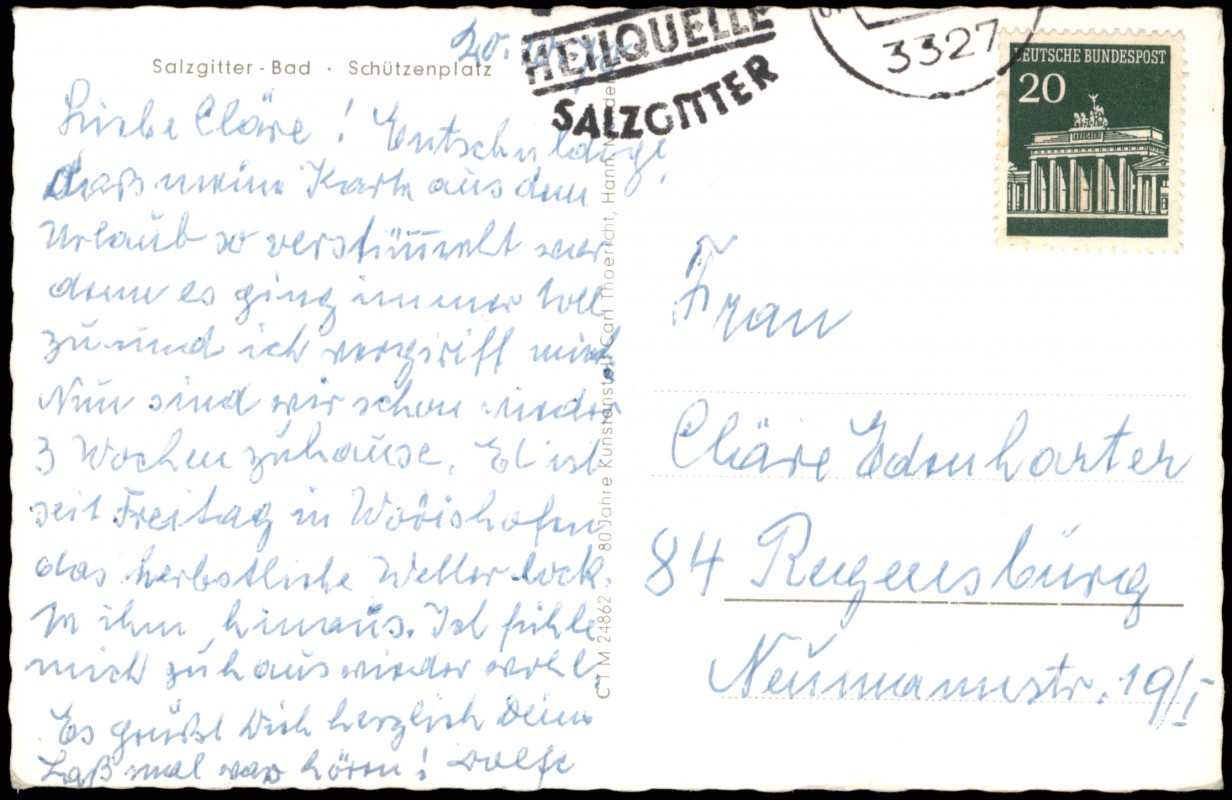 Salzgitter-Bad · Schützenplatz
20.
HEILQUELLE
SALZGITTER
3327
DEUTSCHE BUNDESPOST
20
Liebe Cläre! Entschuldige,
daß meine Karte aus dem
Urlaub so verstümmelt war
denn es ging immer toll
zu und ich vergriff mich,
Nun sind wir schon wieder
3 Wochen zuhause. Er ist
seit Freitag in Wörishofen
das herbstliche Wetter lock-
te ihn hinaus. Ich fühle
mich zuhaus wieder wohl.
Es grüßt Dich herzlich Deine
Laß mal was hören!
CTM 24862 80 Jahre Kunstanstalt Carl Thoericht, Hann.
Frau
Cläre Edenharter
84 Regensburg
Neumannstr. 19/I